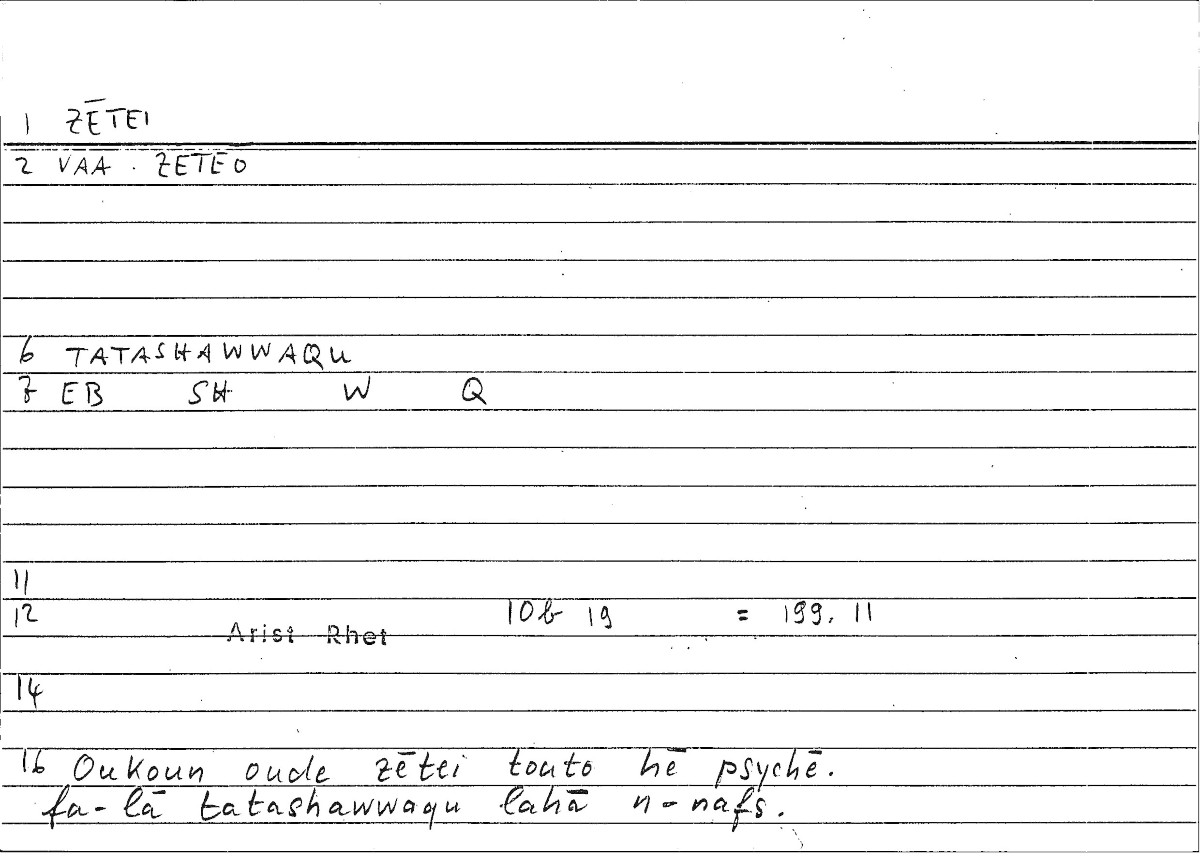 1 ZĒTEI
2 VAA . ZETEO
6 TATASHAWWAQU
7 EB SH W Q
11
12 10b 19 = 199, 11
Arist Rhet
14
16 Oukoun oude zētei touto hē psychē.
fa-lā tatashawwaqu lahā n-nafs.